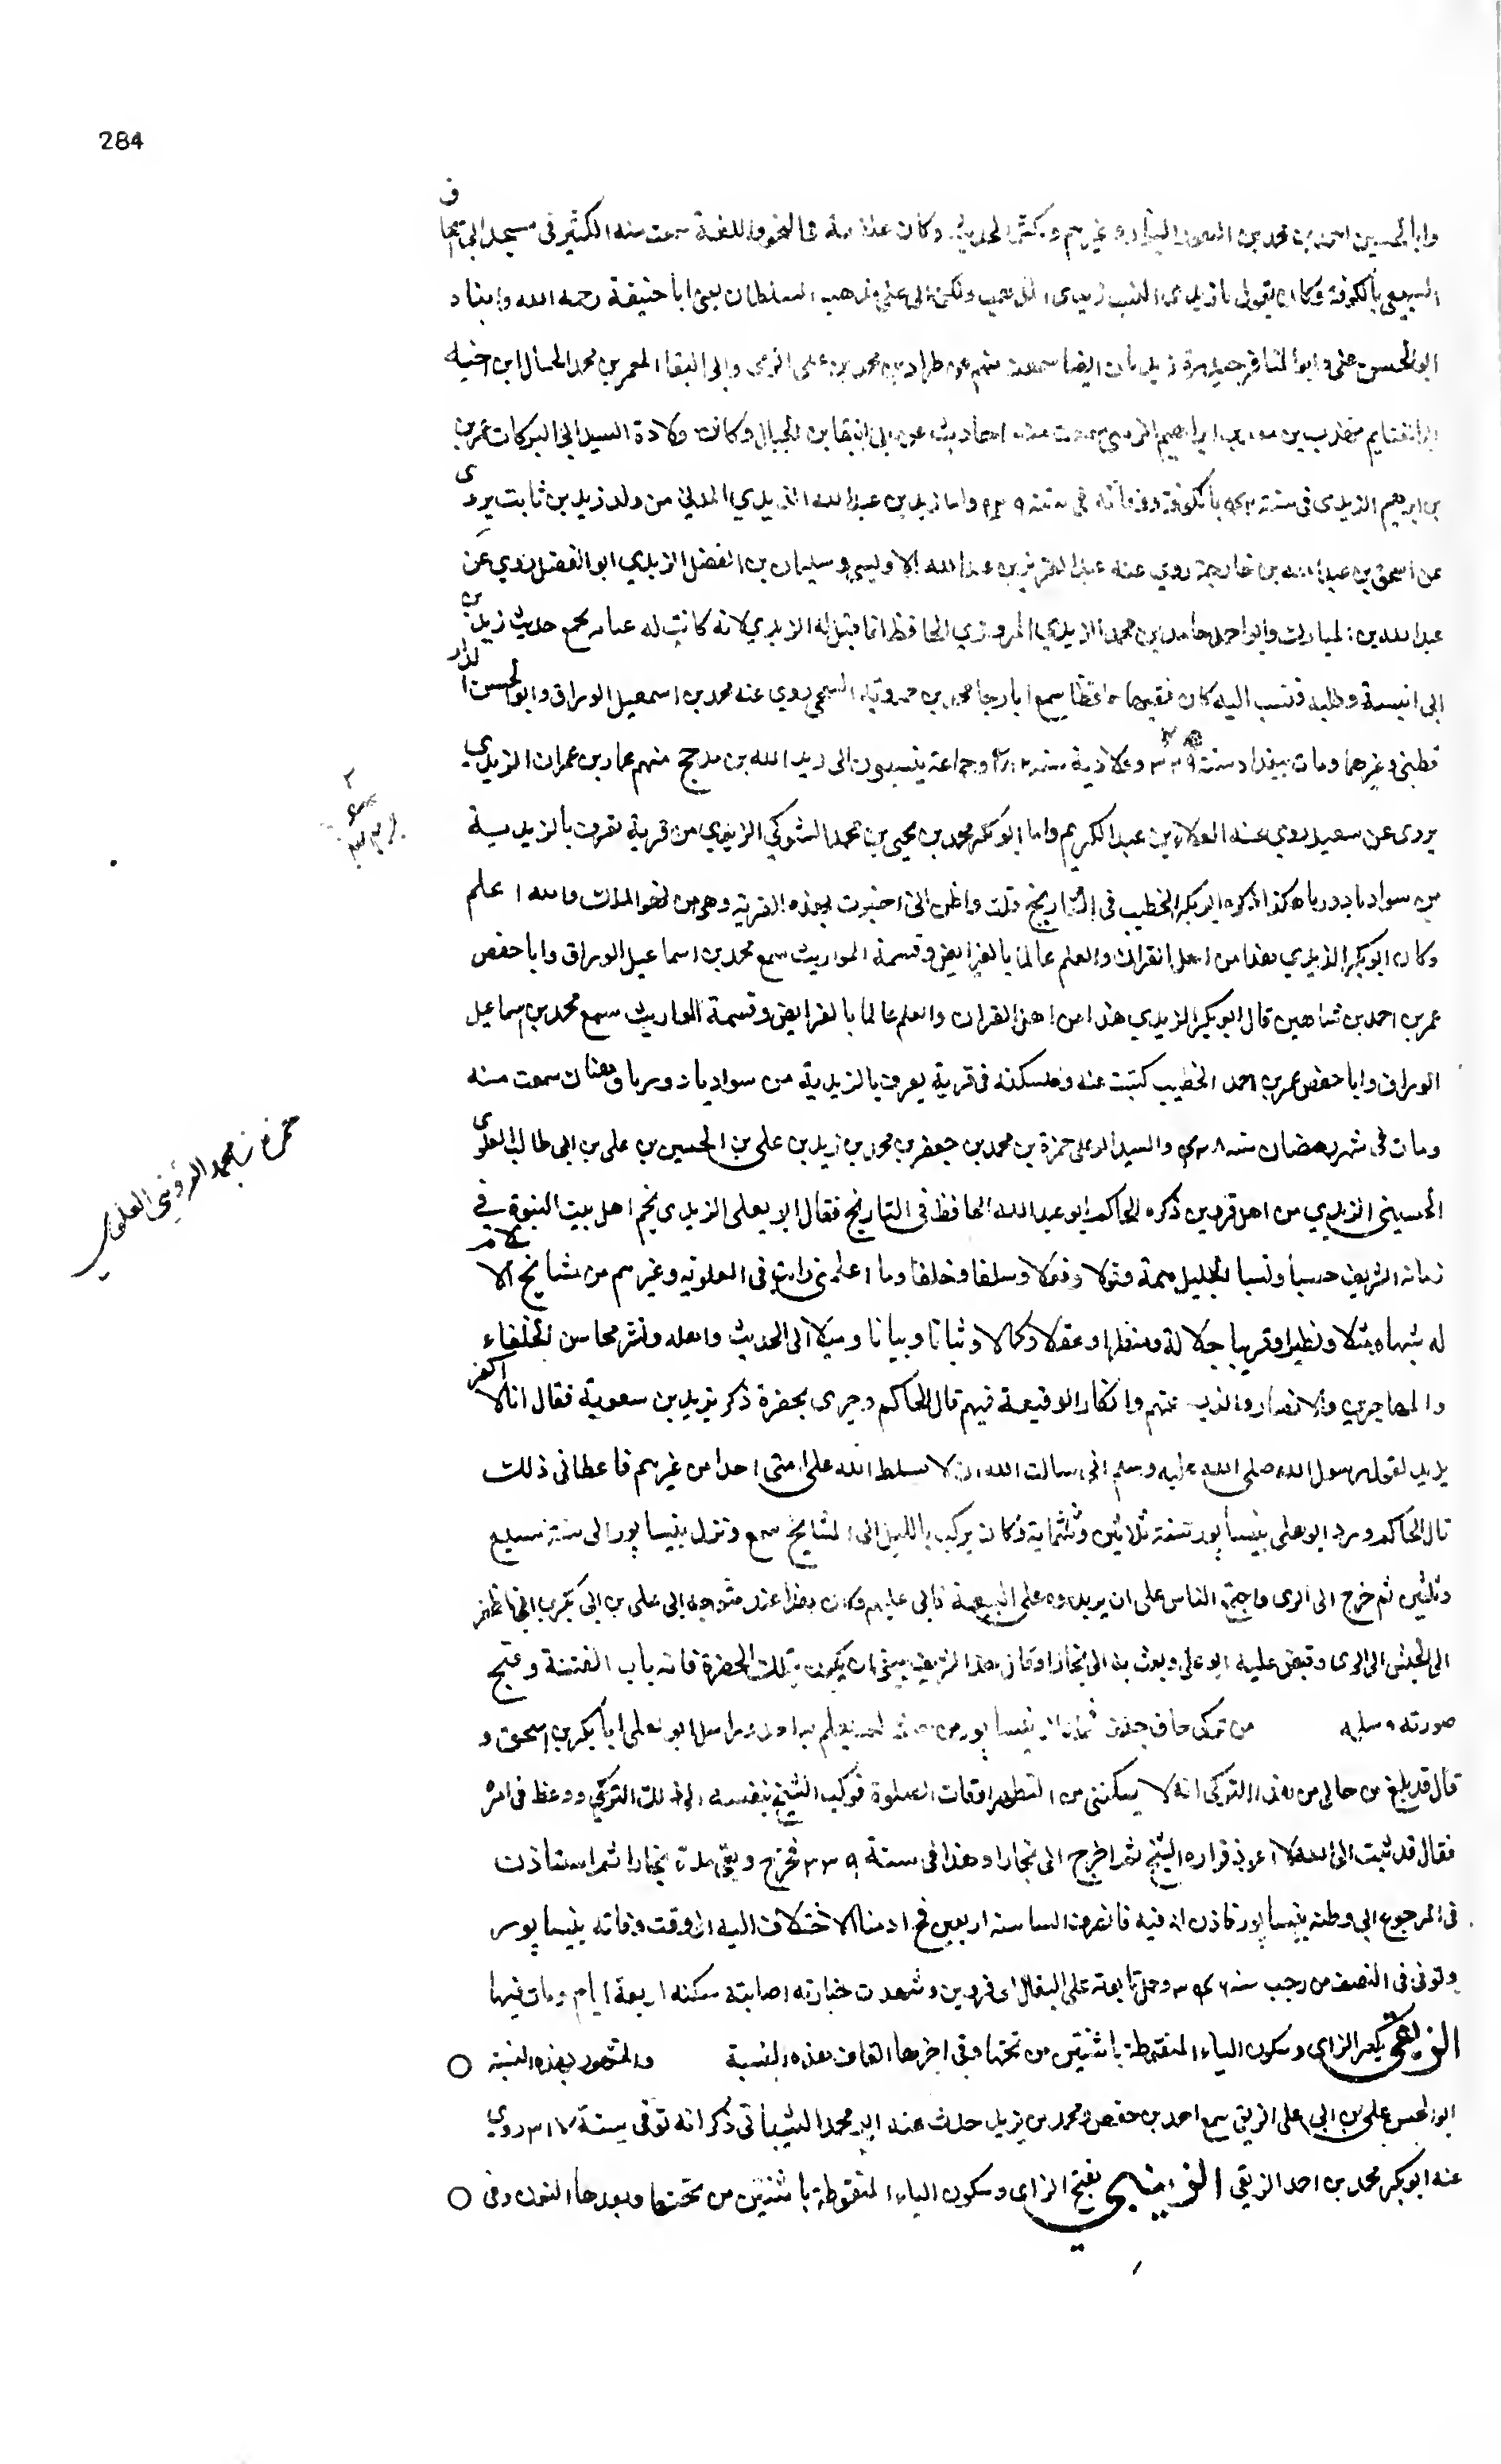 284
وابا الحسين احمد بن محمد بن النقور البزاز وغيرهم وكثر الحديث وكان علامة فى النحو واللغة سمعت منه الكثير فى مسجد ابى اسحاق
السبيعى بالكوفة وكان يقول انا زيدى النسب زيدى المذهب ولكن افتى على مذهب السلطان يعنى ابا حنيفة رحمه الله وابناه
ابو الحسن على وابو المناقب حيدرة زيديان ايضا سمعت منهم عن طراد بن محمد بن على الزينبى وابى البقا المعمر بن محمد الحبال ابن اخيه
ابو الغنايم بن ابراهيم الزيدى سمعت منه احاديث عن ابى البقا بن الحبال وكانت ولادة السيد ابى البركات عمر بن
بن ابرهيم الزيدى فى سنة بالكوفة ووفاته فى سنة واما زيد بن عبد الله الزيدي المدني من ولد زيد بن ثابت يروى
عن اسحق بن عبد الله بن خارجة روي عنه عبد العزيز بن عبد الله الاويسي وسليمان بن الفضل الزيدي ابو الفضل روي عن
عبد الله بن المبارك وابو احمد حامد بن محمد الزيدي المروزي الحافظ انما قيل له الزيدي لانه كانت له عناية بجمع حديث زيد بن
ابى انيسة وطلبه فنسب اليه كان فقيها حافظا سمع ابا رجا محمد بن حمدويه السنجى روي عنه محمد بن اسمعيل الوراق وابو الحسن الدار
قطنى وغيرهما ومات ببغداد سنة ٣٢٩ وولادته سنة ٢٨٢ وجماعة ينسبون الى زيد الله بن مدحج منهم عمار بن عمران الزيدي
يروى عن سعيد روي عنه العلاء بن عبد الكريم واما ابو بكر محمد بن يحيى بن محمد الشوكي الزيدي من قرية تعرف بالزيدية
من سواد بادوريا هكذا ذكره ابو بكر الخطيب فى التاريخ قلت واظن انى اجتزت بهذه القرية وهى من نهر الملك والله اعلم
وكان ابو بكر الزيدي هذا من اهل القران والعلم عالما بالفرايض وقسمة المواريث سمع محمد بن اسماعيل الوراق وابا حفص
عمر بن احمد بن شاهين قال ابو بكر الزيدي هذا من اهل القران والعلم عالما بالفرايض وقسمة المواريث سمع محمد بن اسماعيل
الوراق وابا حفص عمر بن احمد الخطيب كتبت عنه ومسكنه فى قرية يعرف بالزيدية من سواد بادوريا وهناك سمعت منه
ومات فى شهر رمضان سنة ٤٣٨ والسيد ابو على حمزة بن محمد بن جعفر بن محمد بن زيد بن على بن الحسين بن على بن ابى طالب العلوى
الحسينى الزيدي من اهل قزوين ذكره الحاكم ابو عبد الله الحافظ فى التاريخ فقال ابو يعلى الزيدى نجم اهل بيت النبوة في
زمانه الشريف حسبا ونسبا الجليل همة وقولا وفعلا وسلفا وخلفا وما اعلمنى رايت فى العلوية وغيرهم من مشايخ الاسلام
له شبها ومثلا ونظيرا وقريبا جلالة ومنظرا وعقلا وكمالا وثباتا وبيانا وميلا الى الحديث واهله ونشر محاسن الخلفاء
والمهاجرين والانصار والذب عنهم وانكار الوقيعة فيهم قال الحاكم وجرى بحضرته ذكر يزيد بن معوية فقال انا لا اكفر
يزيد لقول رسول الله صلى الله عليه وسلم انى سالت الله ان لا يسلط الله على امتى احدا من غيرهم فاعطانى ذلك
قال الحاكم ورد ابو يعلى نيسابور سنة ثلاثين وثلثماية وكان يركب بالليل الى المشايخ سمع ونزل نيسابور الى سنة سبع
وثلثين ثم خرج الى الرى واجتمع الناس على ان يريدوه على البيعة فابى عليهم وكان هذا عند متوجه ابى على بن ابى بكر بن ابى المظفر
الى الجيش الى الرى وقبض عليه ابو على وبعث به الى بخارا وقال هذا الشريف ينبغى ان يكون بتلك الحضرة فانه باب الفتنة وقبح
صورته وسلمه من تركى جاف جلف فلما دخل نيسابور من لم يعلم به احد وراسل ابو يعلى ابا بكر بن اسحق و
قال قد بلغ من حالى من هذا التركى انه لا يمكننى من التطهر اوقات الصلوة فركب الشيخ بنفسه الى ذلك التركي ووعظ فى امره
فقال قد تبت الى الله لا اعود فزاره الشيخ ثم اخرج الى بخارا وهذا فى سنة ٣٣٩ فخرج وبقى مدة ببخارا ثم استاذن
فى الرجوع الى وطنه نيسابور فاذن له فيه فانصرف الينا سنة اربعين فحمدنا الاختلاف اليه الى وقت وفاته بنيسابور
وتوفى فى النصف من رجب سنة ٣٤٦ وحمل تابوته على البغال الى قزوين وشهدت جنازته اصابته سكتة اربعة ايام ومات فيها
الزيقى بكسر الزاى وسكون الياء المنقوطة باثنتين من تحتها وفى اخرها القاف هذه النسبة والمشهور بهذه النسبة ○
ابو الحسن على بن ابى على الزيقى سمع احمد بن حفص ومحمد بن يزيد حدث عنه ابو محمد الشيبانى ذكر انه توفى سنة ٣١٧ روي
عنه ابو بكر محمد بن احمد الزيقى الزينبي بفتح الزاى وسكون الياء المنقوطة باثنتين من تحتها وبعدها النون وفى ○
حمزة بن محمد القزوينى العلوي